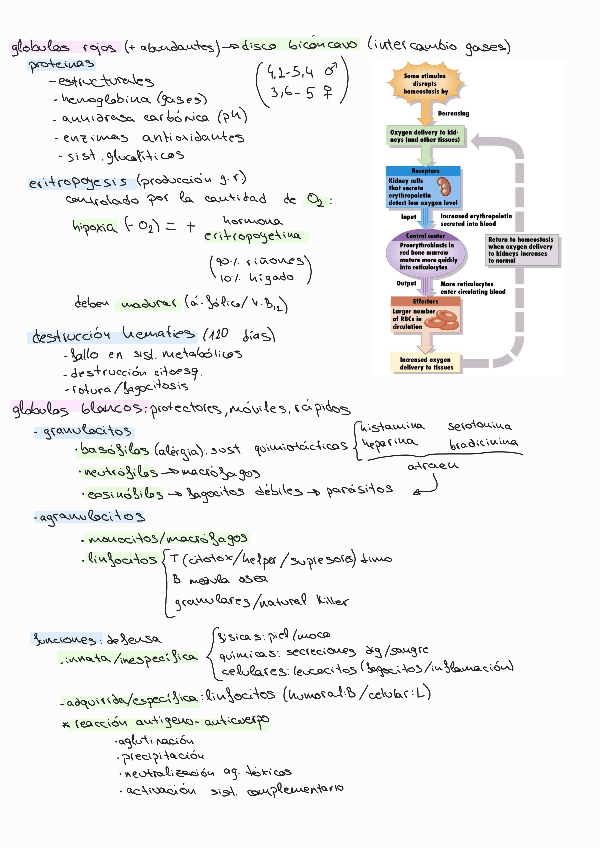 globulos rojos (+ abundantes) → disco bicóncavo (intercambio gases)
proteinas
- estructurales
- hemoglobina (gases)
- anhidrasa carbónica (pH)
- enzimas antioxidantes
- sist. glucolíticos
(4,2-5,4 ♂
3,6-5 ♀)
eritropoyesis (producción g.r)
controlado por la cantidad de O2:
hipoxia (-O2) = + hormona
eritropoyetina
(90% riñones
10% hígado)
deben madurar (á. fólico/v. B12)
destrucción hematíes (120 días)
- fallo en sist. metabólicos
- destrucción citoesq.
- rotura/fagocitosis
Some stimulus
disrupts
homeostasis by
Decreasing
Oxygen delivery to kid-
neys (and other tissues)
Receptors
Kidney cells
that secrete
erythropoietin
detect low oxygen level
Input
Increased erythropoietin
secreted into blood
Control center
Proerythroblasts in
red bone marrow
mature more quickly
into reticulocytes
Return to homeostasis
when oxygen delivery
to kidneys increases
to normal
Output
More reticulocytes
enter circulating blood
Effectors
Larger number
of RBCs in
circulation
Increased oxygen
delivery to tissues
globulos blancos: protectores, móviles, rápidos
- granulocitos
· basófilos (alérgia): sust quimiotácticas { histamina serotonina
heparina bradicinina
· neutrófilos → macrófagos
atraen
· eosinófilos → fagocitos débiles → parásitos
- agranulocitos
· monocitos/macrófagos
· linfocitos { T (citotox/helper/supresores) timo
B medula osea
granulares/natural killer
funciones: defensa
· innata/inespecífica { físicas: piel/moco
químicas: secreciones dig/sangre
celulares: leucocitos (fagocitos/inflamación)
- adquirida/específica: linfocitos (humoral: B / celular: L)
* reacción antigeno-anticuerpo
· aglutinación
· precipitación
· neutralización ag. tóxicos
· activación sist. complementario